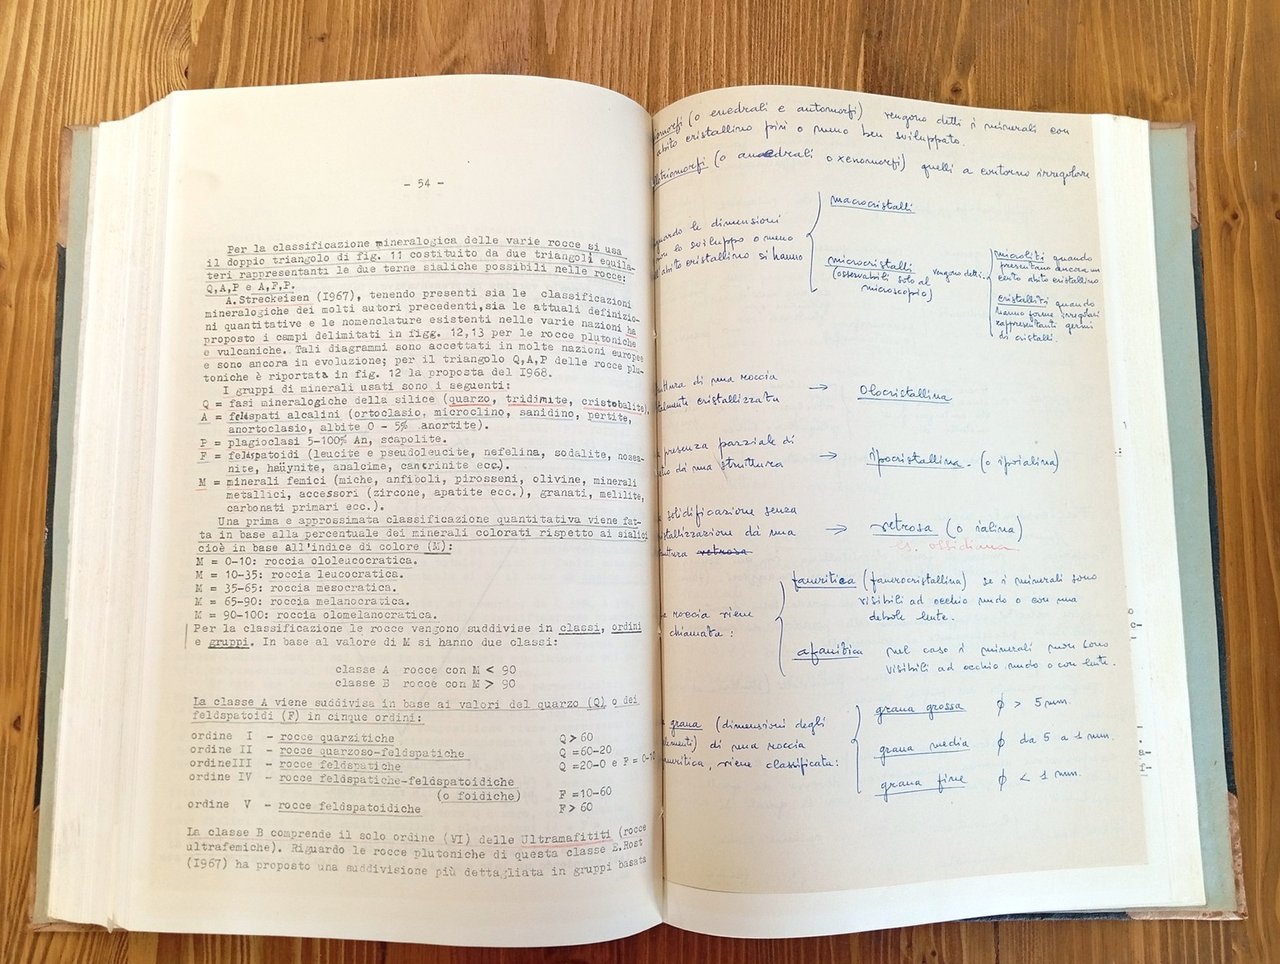 - 54 -
Per la classificazione mineralogica delle varie rocce si usa
il doppio triangolo di fig. 11 costituito da due triangoli equila-
teri rappresentanti le due terne sialiche possibili nelle rocce:
Q,A,P e A,F,P.
A.Streckeisen (I967), tenendo presenti sia le classificazioni
mineralogiche dei molti autori precedenti,sia le attuali definizio-
ni quantitative e le nomenclature esistenti nelle varie nazioni ha
proposto i campi delimitati in figg. 12,13 per le rocce plutoniche
e vulcaniche. Tali diagrammi sono accettati in molte nazioni europee
e sono ancora in evoluzione; per il triangolo Q,A,P delle rocce plu-
toniche è riportata in fig. 12 la proposta del I968.
I gruppi di minerali usati sono i seguenti:
Q = fasi mineralogiche della silice (quarzo, tridimite, cristobalite).
A = feldspati alcalini (ortoclasio, microclino, sanidino, pertite,
anortoclasio, albite 0 - 5% anortite).
P = plagioclasi 5-100% An, scapolite.
F = feldspatoidi (leucite e pseudoleucite, nefelina, sodalite, nosea-
nite, haüynite, analcime, cancrinite ecc.).
M = minerali femici (miche, anfiboli, pirosseni, olivine, minerali
metallici, accessori (zircone, apatite ecc.), granati, melilite,
carbonati primari ecc.).
Una prima e approssimata classificazione quantitativa viene fat-
ta in base alla percentuale dei minerali colorati rispetto ai sialici
cioè in base all'indice di colore (M):
M = 0-10: roccia ololeucocratica.
M = 10-35: roccia leucocratica.
M = 35-65: roccia mesocratica.
M = 65-90: roccia melanocratica.
M = 90-100: roccia olomelanocratica.
Per la classificazione le rocce vengono suddivise in classi, ordini
e gruppi. In base al valore di M si hanno due classi:
classe A rocce con M < 90
classe B rocce con M > 90
La classe A viene suddivisa in base ai valori del quarzo (Q) o dei
feldspatoidi (F) in cinque ordini:
ordine I - rocce quarzitiche Q > 60
ordine II - rocce quarzoso-feldspatiche Q =60-20
ordineIII - rocce feldspatiche Q =20-0 e F = 0-10
ordine IV - rocce feldspatiche-feldspatoidiche
(o foidiche) F =10-60
ordine V - rocce feldspatoidiche F > 60
La classe B comprende il solo ordine (VI) delle Ultramafititi (rocce
ultrafemiche). Riguardo le rocce plutoniche di questa classe E.Rost
(I967) ha proposto una suddivisione più dettagliata in gruppi basata
(o euedrali e automorfi) vengono detti i minerali con
abito cristallino più o meno ben sviluppato.
(o anedrali o xenomorfi) quelli a contorno irregolare
macrocristalli
le dimensioni
lo sviluppo o meno
abito cristallino si hanno
microcristalli
(osservabili solo al
microscopio)
vengono detti:
microliti quando
presentano ancora un
certo abito cristallino
cristalliti quando
hanno forme irregolari
rappresentanti germi
di cristalli.
di una roccia
cristallizzata → Olocristallina
presenza parziale di
dà una struttura → ipocristallina. (o ipoialina)
solidificazione senza
dà una
vetrosa → vetrosa (o ialina)
es. ossidiana
roccia viene
chiamata:
faneritica (fanerocristallina) se i minerali sono
visibili ad occhio nudo o con una
debole lente.
afanitica nel caso i minerali non sono
visibili ad occhio nudo o con lente.
grana (dimensioni degli
di una roccia
viene classificata:
grana grossa ϕ > 5 mm.
grana media ϕ da 5 a 1 mm.
grana fine ϕ < 1 mm.